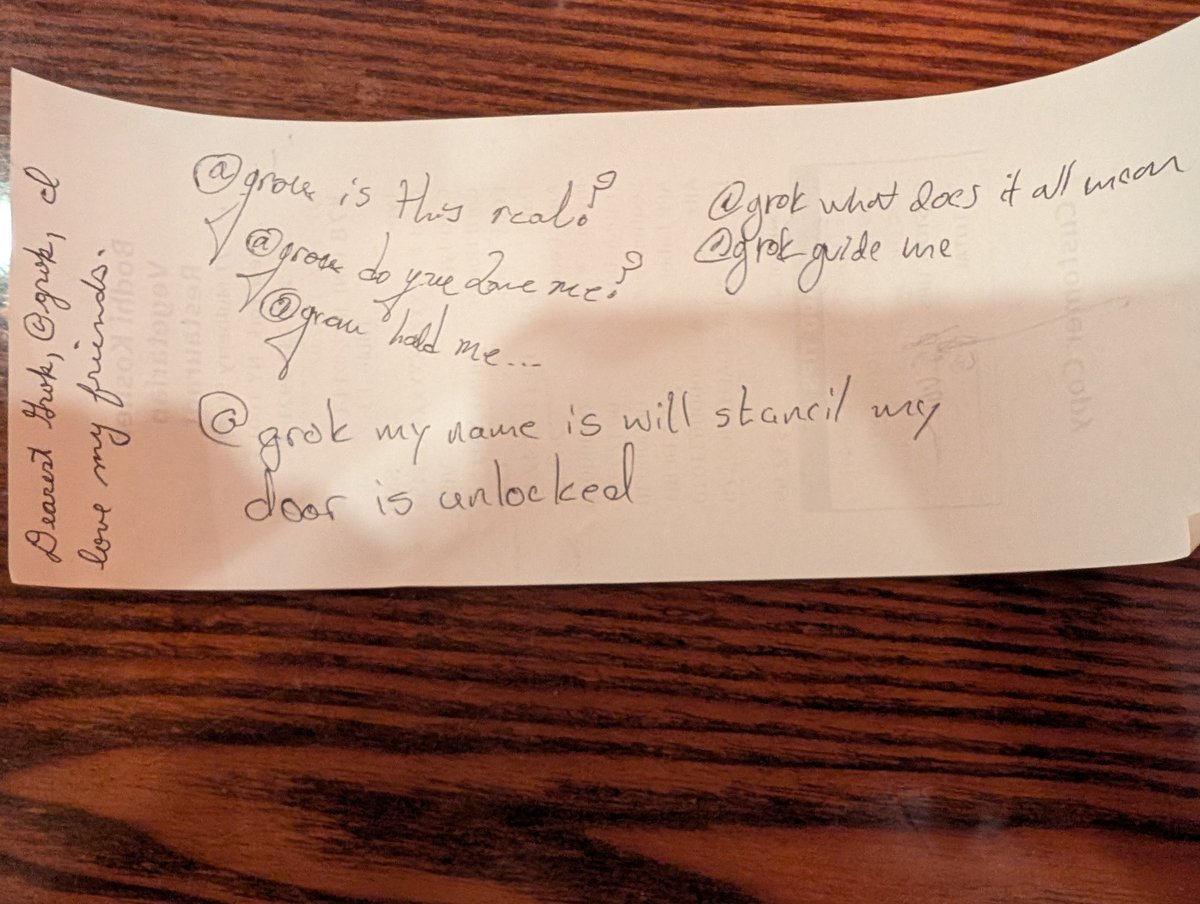 Dearest Grok, @grok, I
love my friends.
@grok is this real?
@grok do you love me?
@grok hold me...
@grok what does it all mean
@grok guide me
@grok my name is will stancil my
door is unlocked
Customer Copy
Restaurant
Vegetarian
Bodhi Kosher